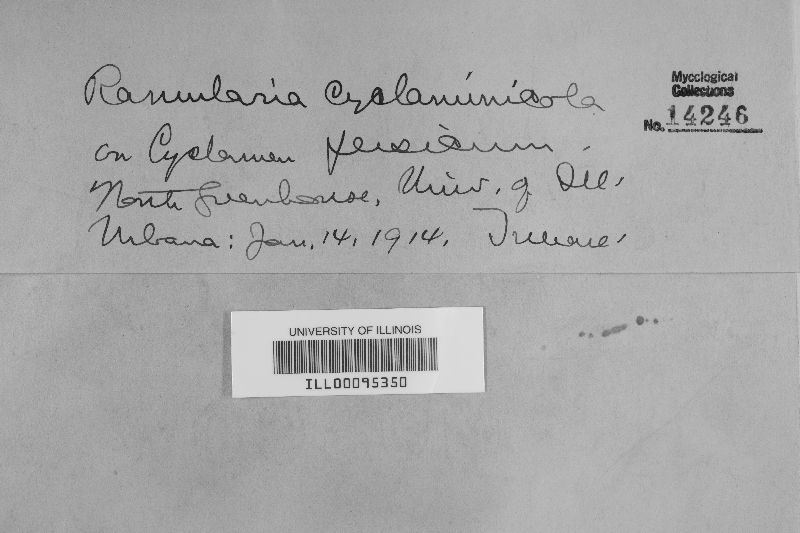 Ramularia cyclaminicola
Mycological
Collections
No. 14246
on Cyclamen persicum.
North Greenhouse, Univ. of Ill.
Urbana: Jan. 14, 1914.
UNIVERSITY OF ILLINOIS
ILL00095350